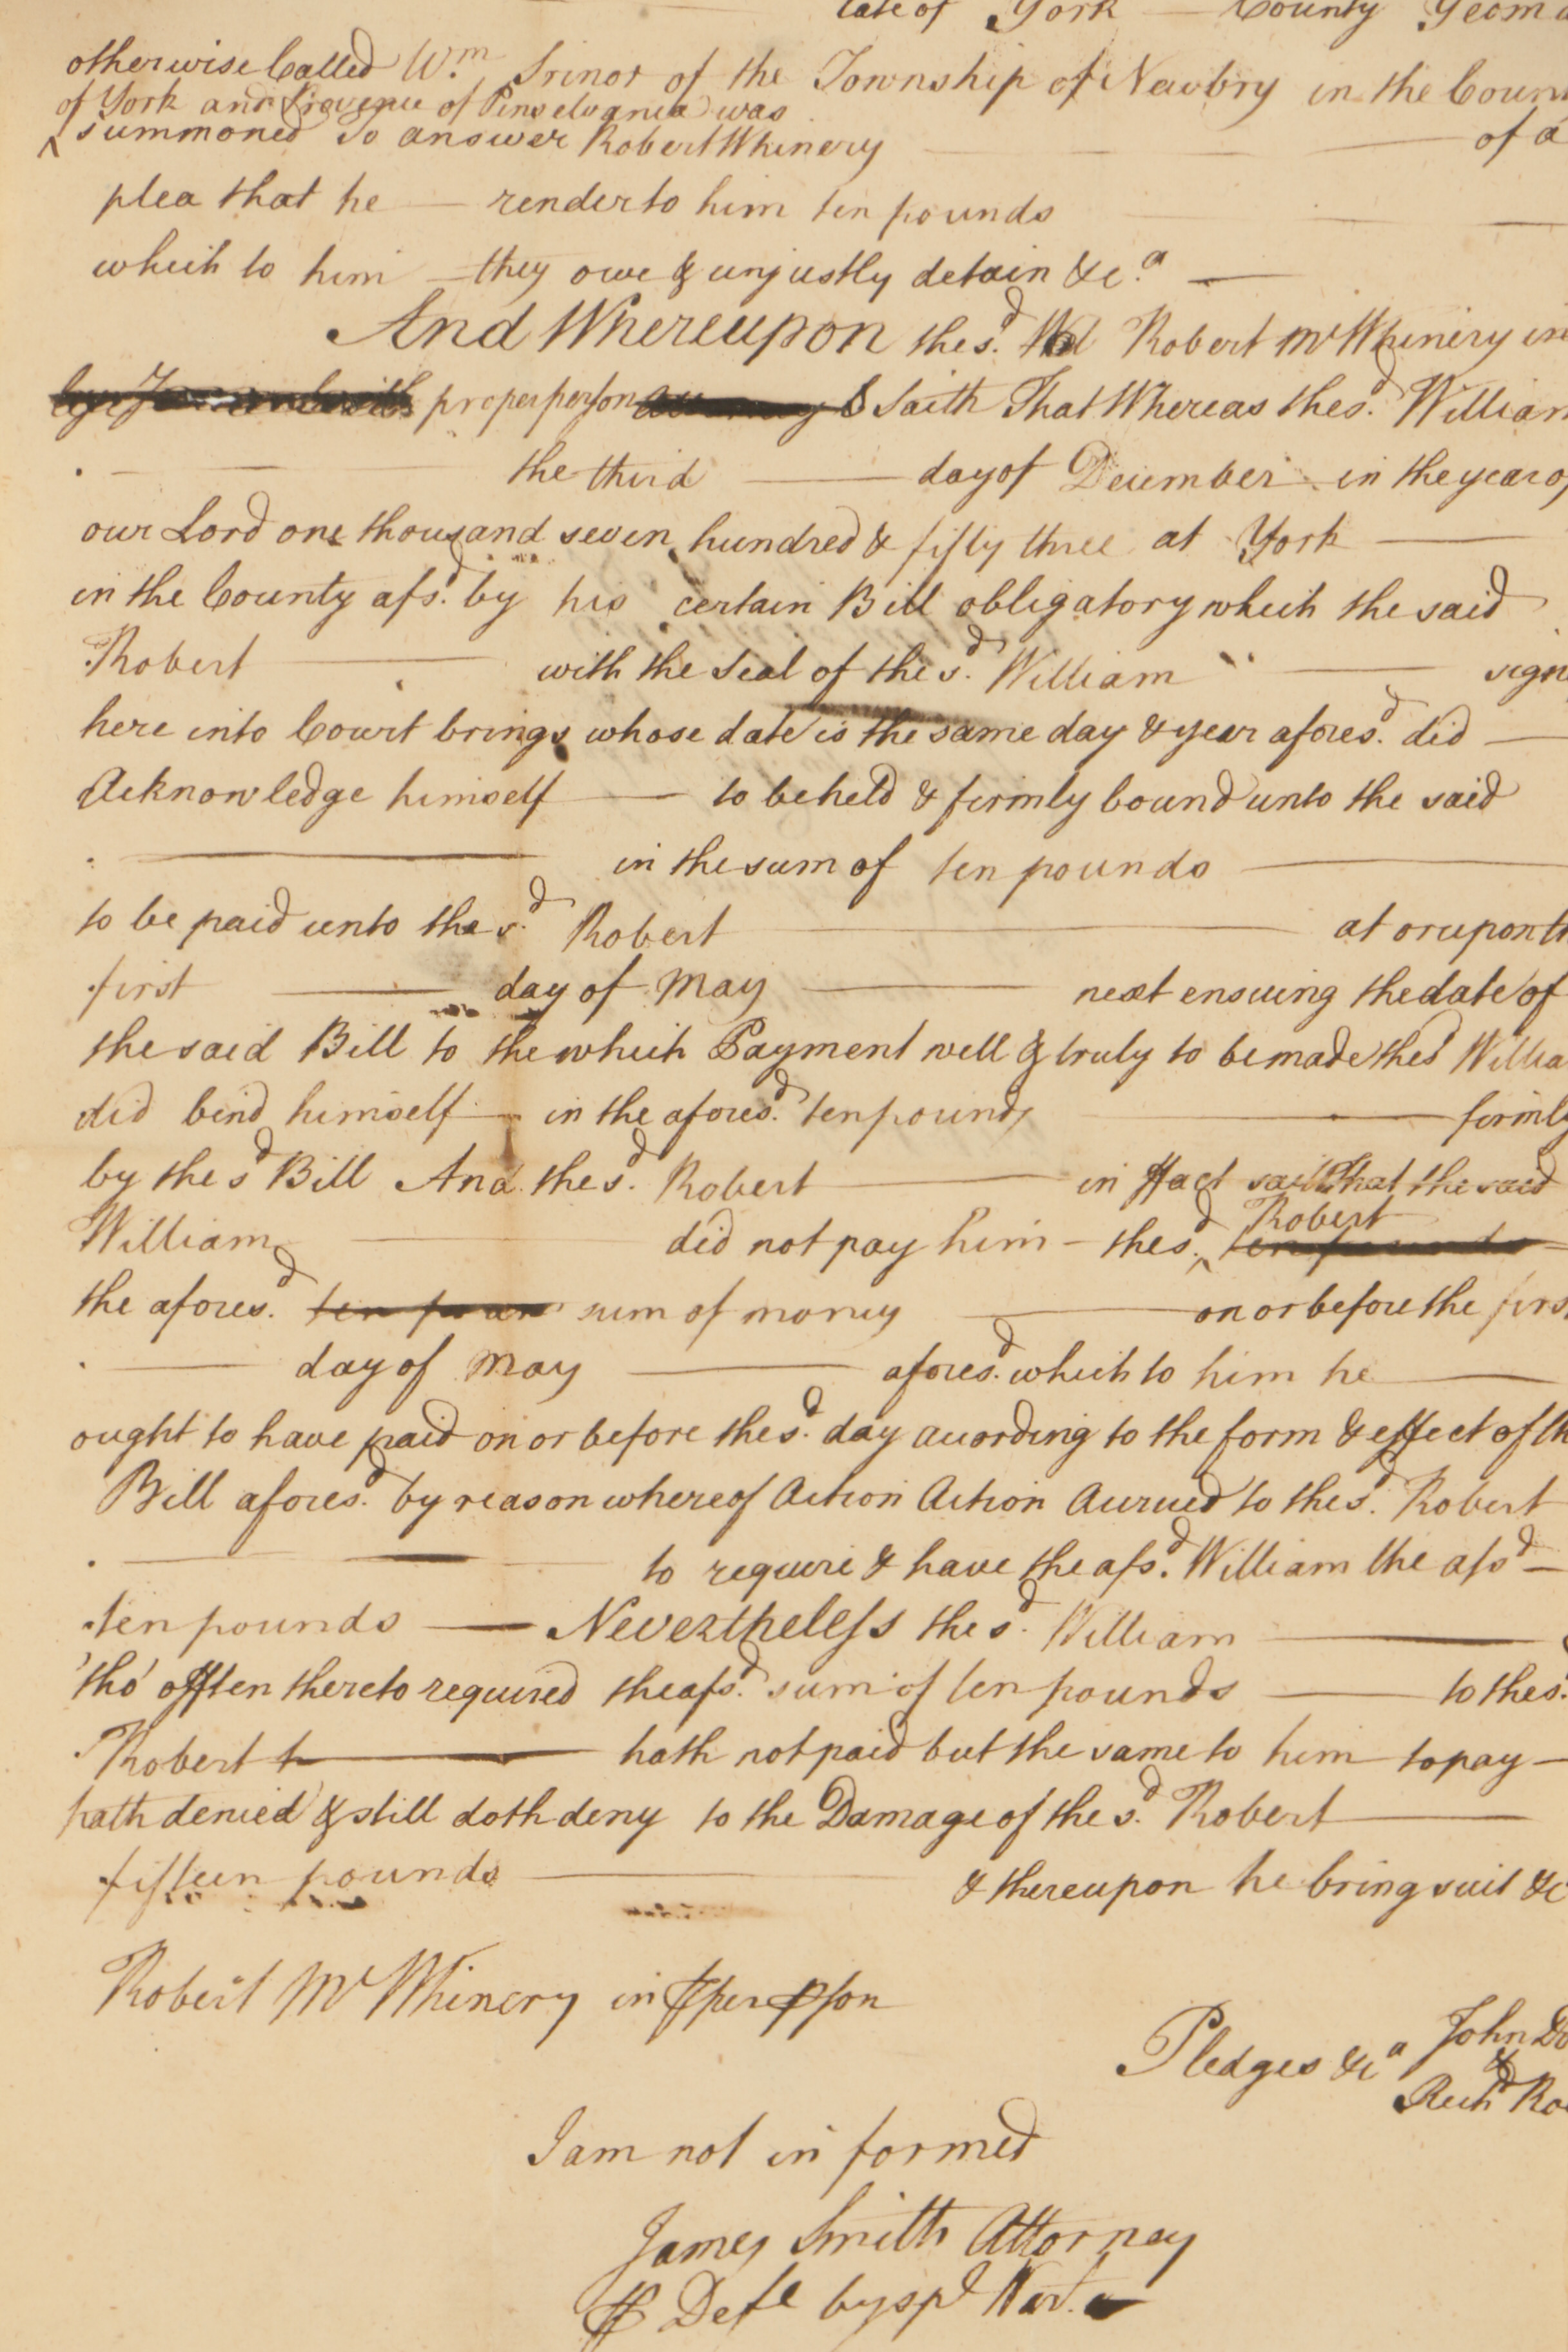 late of York County Yeom
otherwise Called Wm. Srinor of the Township of Newbry in the Coun
of York and Provence of Pinselvania was
^ summoned to answer Robert Whinery of a
plea that he render to him ten pounds
which to him they owe & unjustly detain &c.a
And Whereupon the sd. Robert Mc Whinery in
proper person & Saith That Whereas the sd. William
the third day of December in the year of
our Lord one thousand seven hundred & fifty three at York
in the County afsd. by his certain Bill obligatory which the said
Robert with the Seal of the sd. William sign
here into Court brings whose date is the same day & year aforesd. did
Acknowledge himself to be held & firmly bound unto the said
in the sum of ten pounds
to be paid unto the sd. Robert at or upon th
first day of May next ensuing the date of
the said Bill to the which Payment well & truly to be made the sd Willia
did bind himself in the aforesd. ten pounds firmly
by the sd Bill And the sd. Robert in ffact saith that the said
William did not pay him - the sd. ^ Robert ten pounds
the aforesd. ten poun sum of money on or before the firs
day of May aforesd. which to him he
ought to have paid on or before the sd. day according to the form & effect of th
Bill aforesd. by reason whereof Action Action Accrued to the sd. Robert
to require & have the afsd. William the afsd
ten pounds Nevertheless the sd. William
tho' offten thereto required the afsd. sum of ten pounds to the s.
Robert t hath not paid but the same to him to pay
hath denied & still doth deny to the Damage of the sd. Robert
fifteen pounds & thereupon he bring suit &c
Robert Mc Whinery in son
Pledges &ca John Do
&
Richd Roe
I am not in formed
James Smith Attorney
Deft by spl War.